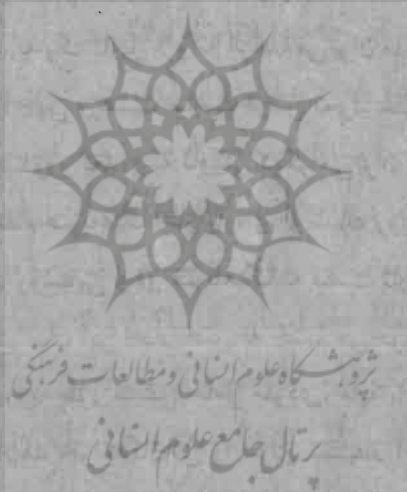 پژوهشگاه علوم انسانی و مطالعات فرهنگی
پرتال جامع علوم انسانی